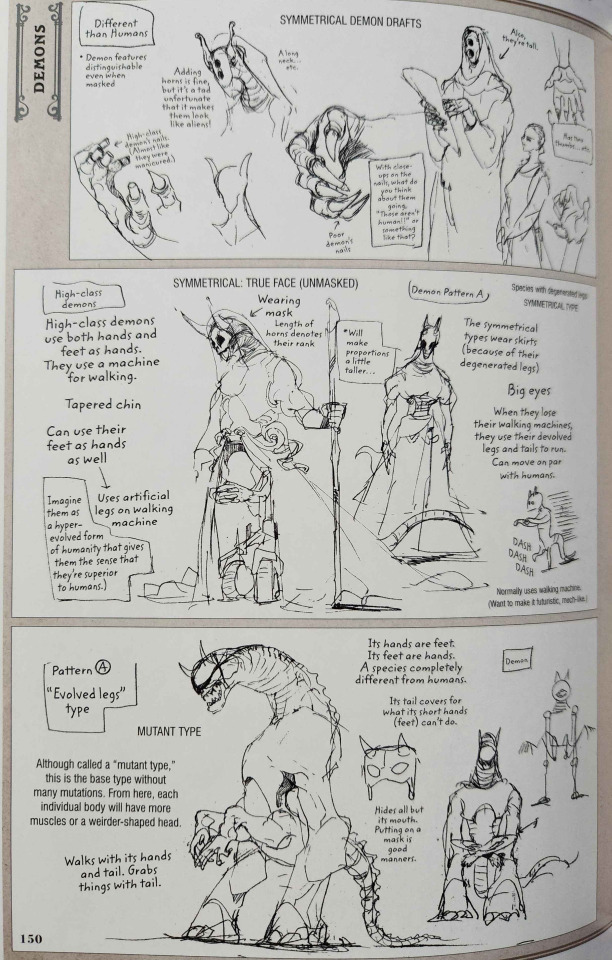 DEMONS
Different
than Humans
• Demon features
distinguishable
even when
masked
SYMMETRICAL DEMON DRAFTS
Adding
horns is fine,
but it's a tad
unfortunate
that it makes
them look
like aliens!
A long
neck...
etc.
Also,
they're tall.
High-class
demon's nails.
(Almost like
they were
manicured.)
Poor
demon's
nails
With close-
ups on the
nails, what do
you think
about them
going,
"Those aren't
human!!" or
something
like that?
thumbs... etc.
SYMMETRICAL: TRUE FACE (UNMASKED)
High-class
demons
High-class demons
use both hands and
feet as hands.
They use a machine
for walking.
Tapered chin
Can use their
feet as hands
as well
Uses artificial
legs on walking
machine
Imagine
them as
a hyper-
evolved form
of humanity that gives
them the sense that
they're superior
to humans.)
Wearing
mask
Length of
horns denotes
their rank
*Will
make
proportions
a little
taller...
Demon Pattern A
Species with degenerated legs
SYMMETRICAL TYPE
The symmetrical
types wear skirts
(because of their
degenerated legs)
Big eyes
When they lose
their walking machines,
they use their devolved
legs and tails to run.
Can move on par
with humans.
DASH
DASH
DASH
Normally uses walking machine.
(Want to make it futuristic, mech-like.)
Pattern Ⓐ
"Evolved legs"
type
MUTANT TYPE
Although called a "mutant type,"
this is the base type without
many mutations. From here, each
individual body will have more
muscles or a weirder-shaped head.
Walks with its hands
and tail. Grabs
things with tail.
Its hands are feet.
Its feet are hands.
A species completely
different from humans.
Its tail covers for
what its short hands
(feet) can't do.
Hides all but
its mouth.
Putting on a
mask is
good
manners.
Demon
150